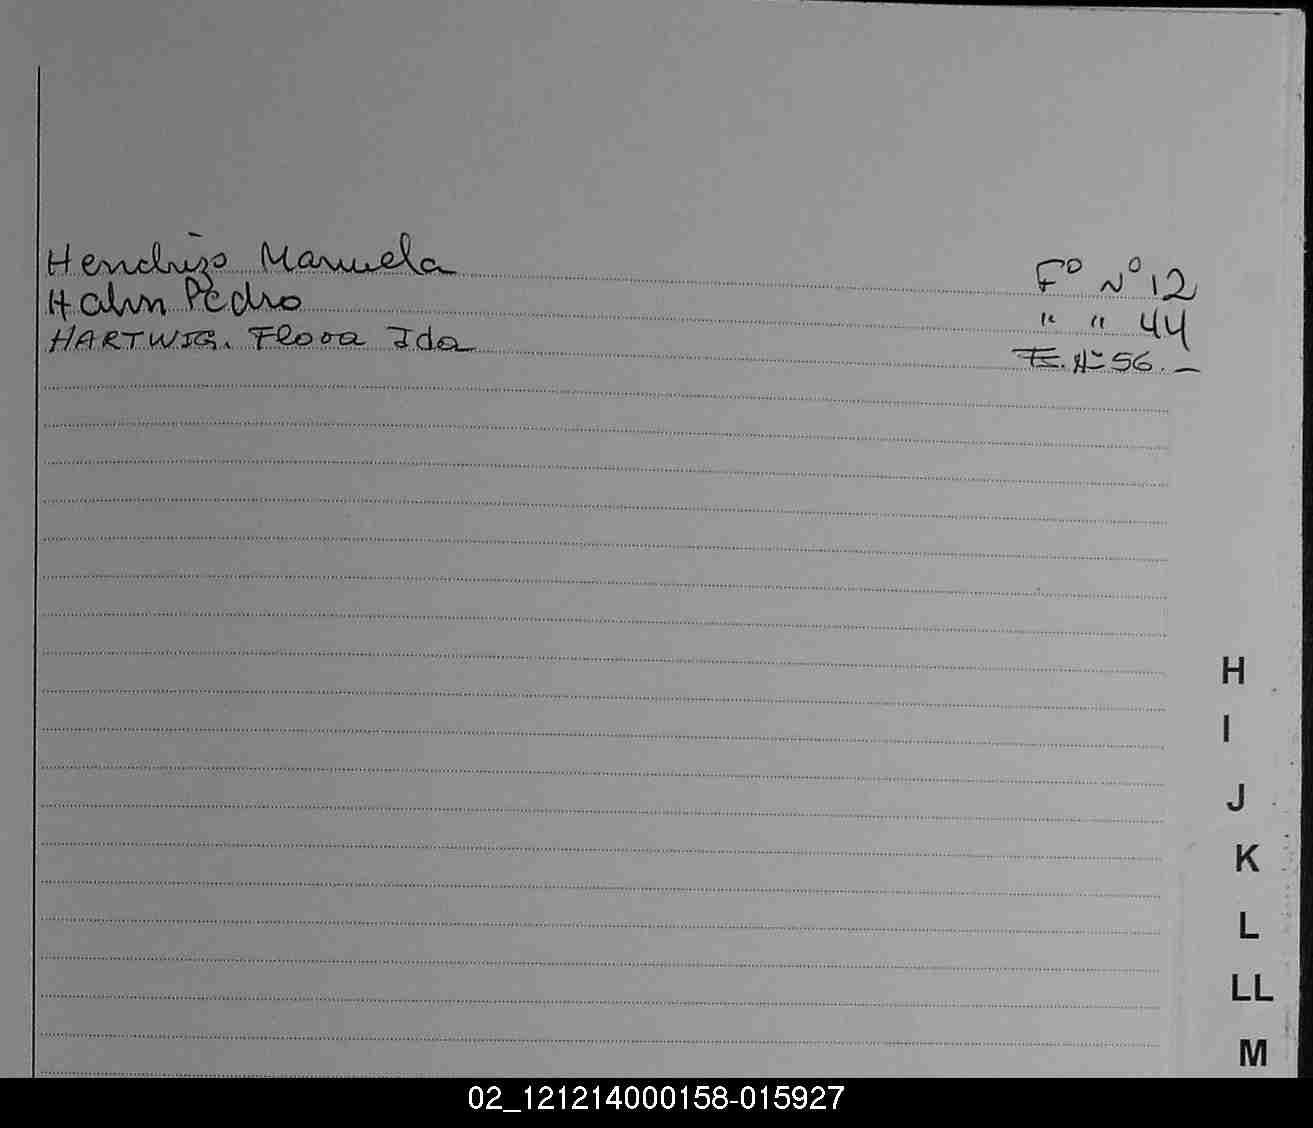 Hendrizo Manuela Fº Nº 12
Hahn Pedro " " 44
HARTWIG. Flora Ida Fs. Nº 56.-
H
I
J
K
L
LL
M
02_121214000158-015927